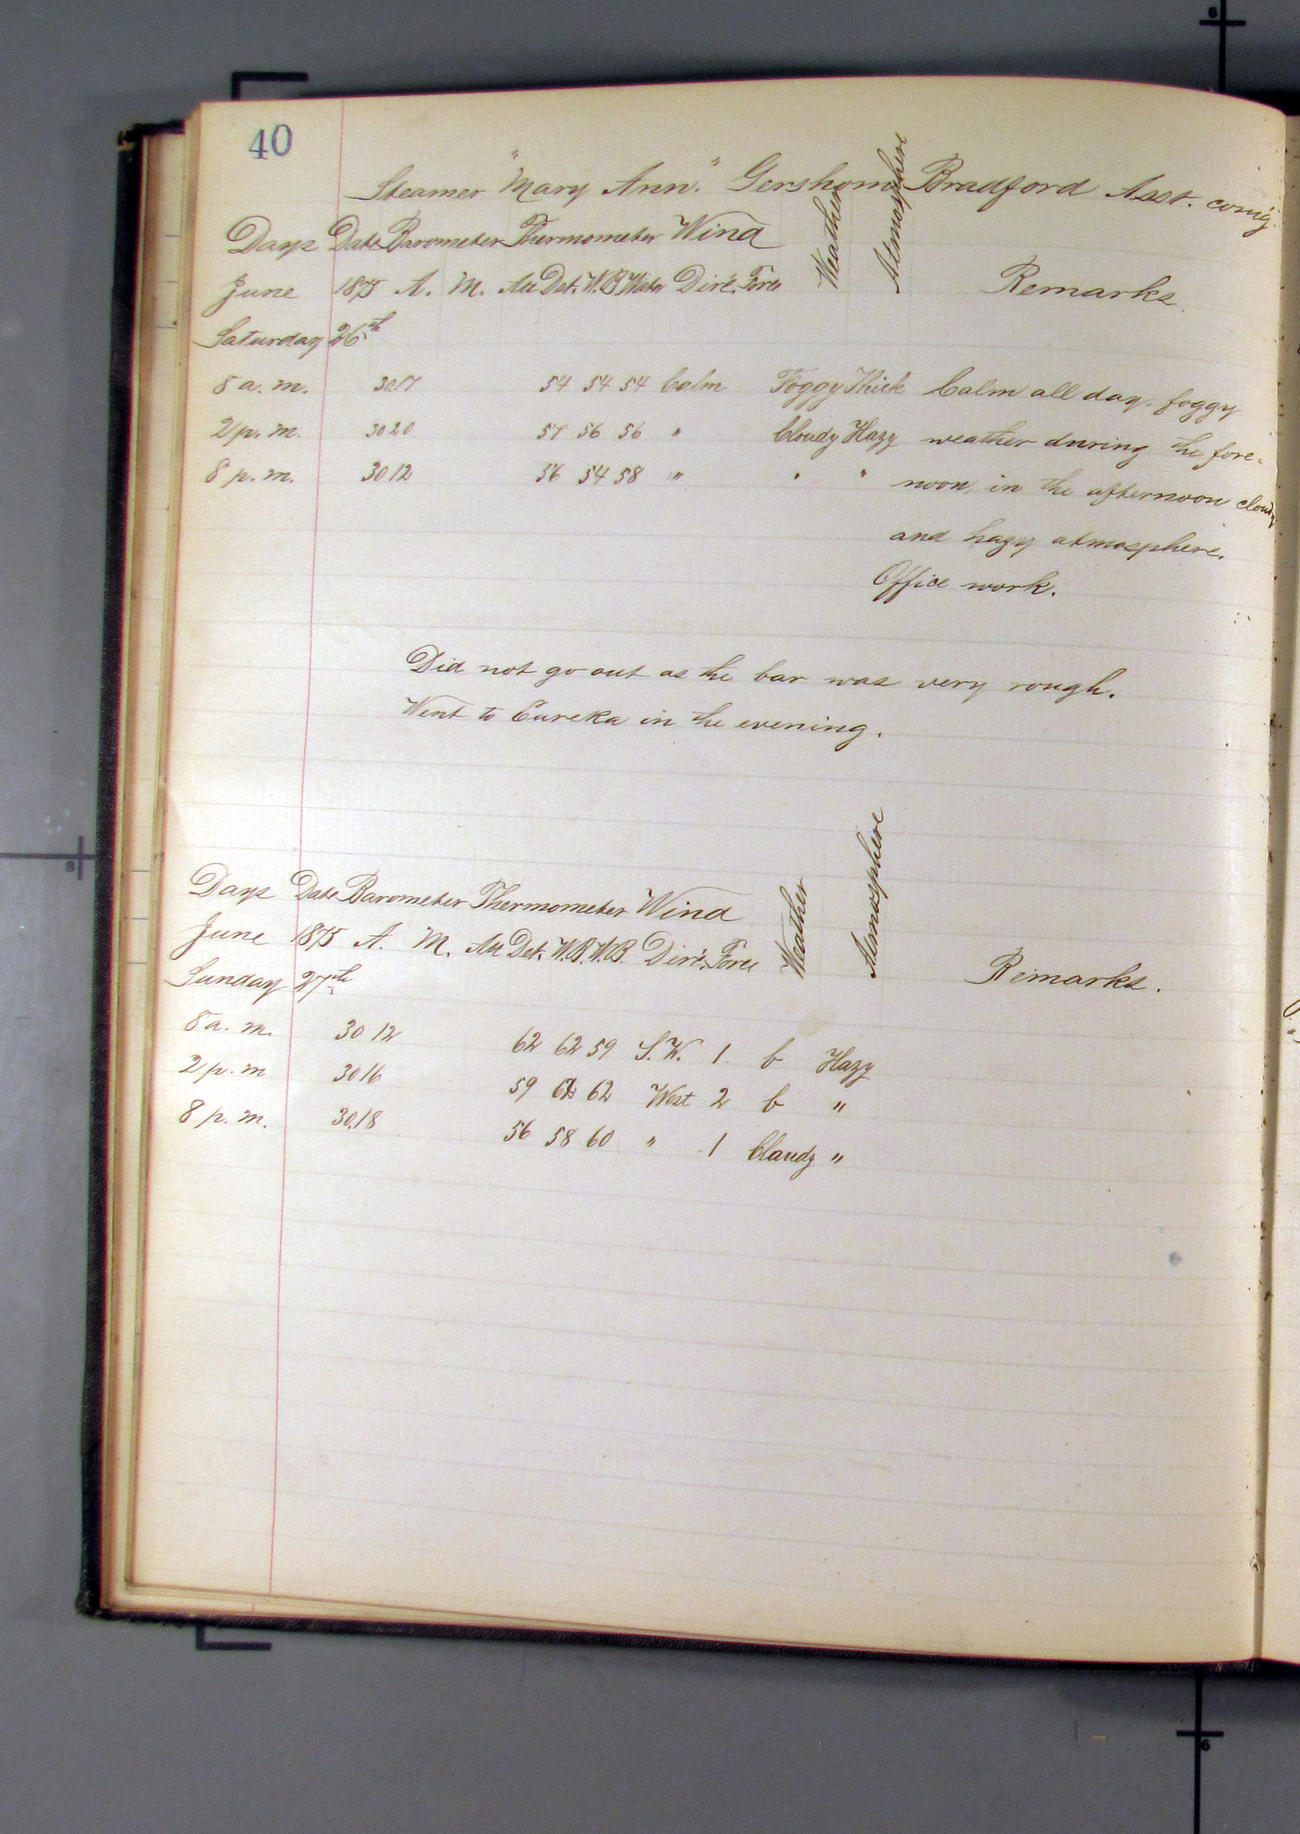 40
Steamer "Mary Ann." Gershom Bradford Asst. com'g
Days Date Barometer Thermometer Wind Weather Atmosphere
June 1875 A. M. Att Det. W.B Water Dir'c. Force Remarks.
Saturday 26th
8 a. m. 3017 54 54 54 Calm Foggy Thick Calm all day. foggy
2 p. m. 3020 57 56 56 " Cloudy Hazy weather during the fore-
8 p. m. 3012 56 54 58 " " " noon, in the afternoon cloudy
and hazy atmosphere.
Office work.
Did not go out as the bar was very rough.
Went to Eureka in the evening.
Days Date Barometer Thermometer Wind Weather Atmosphere
June 1875 A. M. Att Det. W.B. W.B. Dir'c. Force Remarks.
Sunday 27th
8 a. m. 30 12 62 62 59 S.W. 1 b Hazy
2 p. m 3016 59 62 West 2 b "
8 p. m. 30.18 56 58 60 " 1 Cloudy "